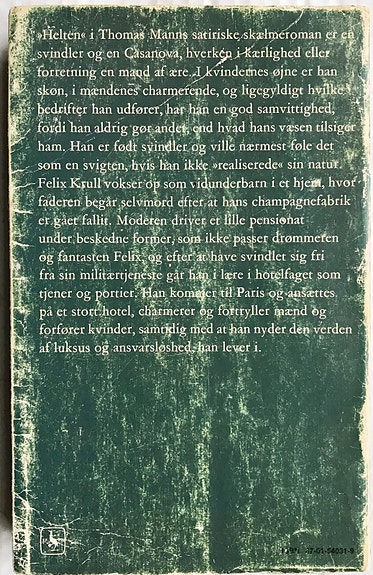 »Helten« i Thomas Manns satiriske skælmeroman er en
svindler og en Casanova, hverken i kærlighed eller
forretning en mand af ære. I kvindernes øjne er han
skøn, i mændenes charmerende, og ligegyldigt hvilke
bedrifter han udfører, har han en god samvittighed,
fordi han aldrig gør andet, end hvad hans væsen tilsiger
ham. Han er født svindler og ville nærmest føle det
som en svigten, hvis han ikke »realiserede« sin natur.
Felix Krull vokser op som vidunderbarn i et hjem, hvor
faderen begår selvmord efter at hans champagnefabrik
er gået fallit. Moderen driver et lille pensionat
under beskedne former, som ikke passer drømmeren
og fantasten Felix, og efter at have svindlet sig fri
fra sin militærtjeneste går han i lære i hotelfaget som
tjener og portier. Han kommer til Paris og ansættes
på et stort hotel, charmerer og fortryller mænd og
forfører kvinder, samtidig med at han nyder den verden
af luksus og ansvarsløshed, han lever i.
ISBN 87-01-54031-9